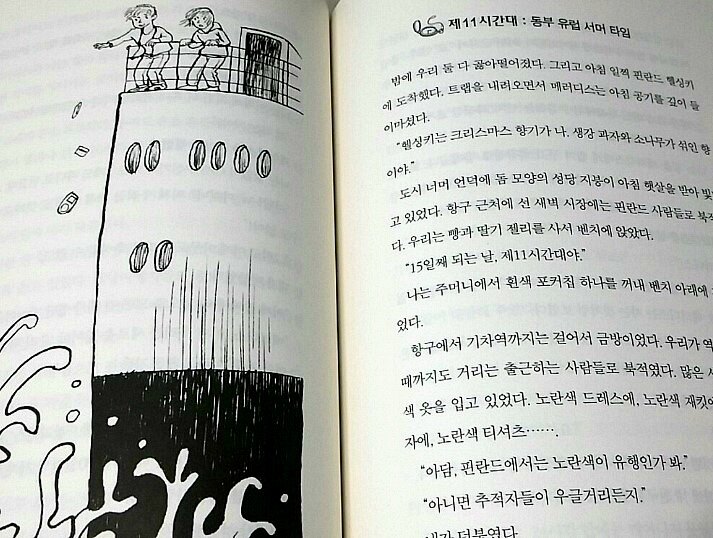 제11시간대 : 동부 유럽 서머 타임
밤에 우리 둘 다 곯아떨어졌다. 그리고 아침 일찍 핀란드 헬싱키
에 도착했다. 트랩을 내려오면서 메러디스는 아침 공기를 깊이 들
이마셨다.
“헬싱키는 크리스마스 향기가 나. 생강 과자와 소나무가 섞인 향
이야.”
도시 너머 언덕에 돔 모양의 성당 지붕이 아침 햇살을 받아 빛
고 있었다. 항구 근처에 선 새벽 시장에는 핀란드 사람들로 북적
다. 우리는 빵과 딸기 젤리를 사서 벤치에 앉았다.
“15일째 되는 날, 제11시간대야.”
나는 주머니에서 흰색 포커칩 하나를 꺼내 벤치 아래에
었다.
항구에서 기차역까지는 걸어서 금방이었다. 우리가 역
때까지도 거리는 출근하는 사람들로 북적였다. 많은
색 옷을 입고 있었다. 노란색 드레스에, 노란색 재킷에
자에, 노란색 티셔츠…….
“아담, 핀란드에서는 노란색이 유행인가 봐.”
“아니면 추적자들이 우글거리든지.”
내가 덧붙였다.